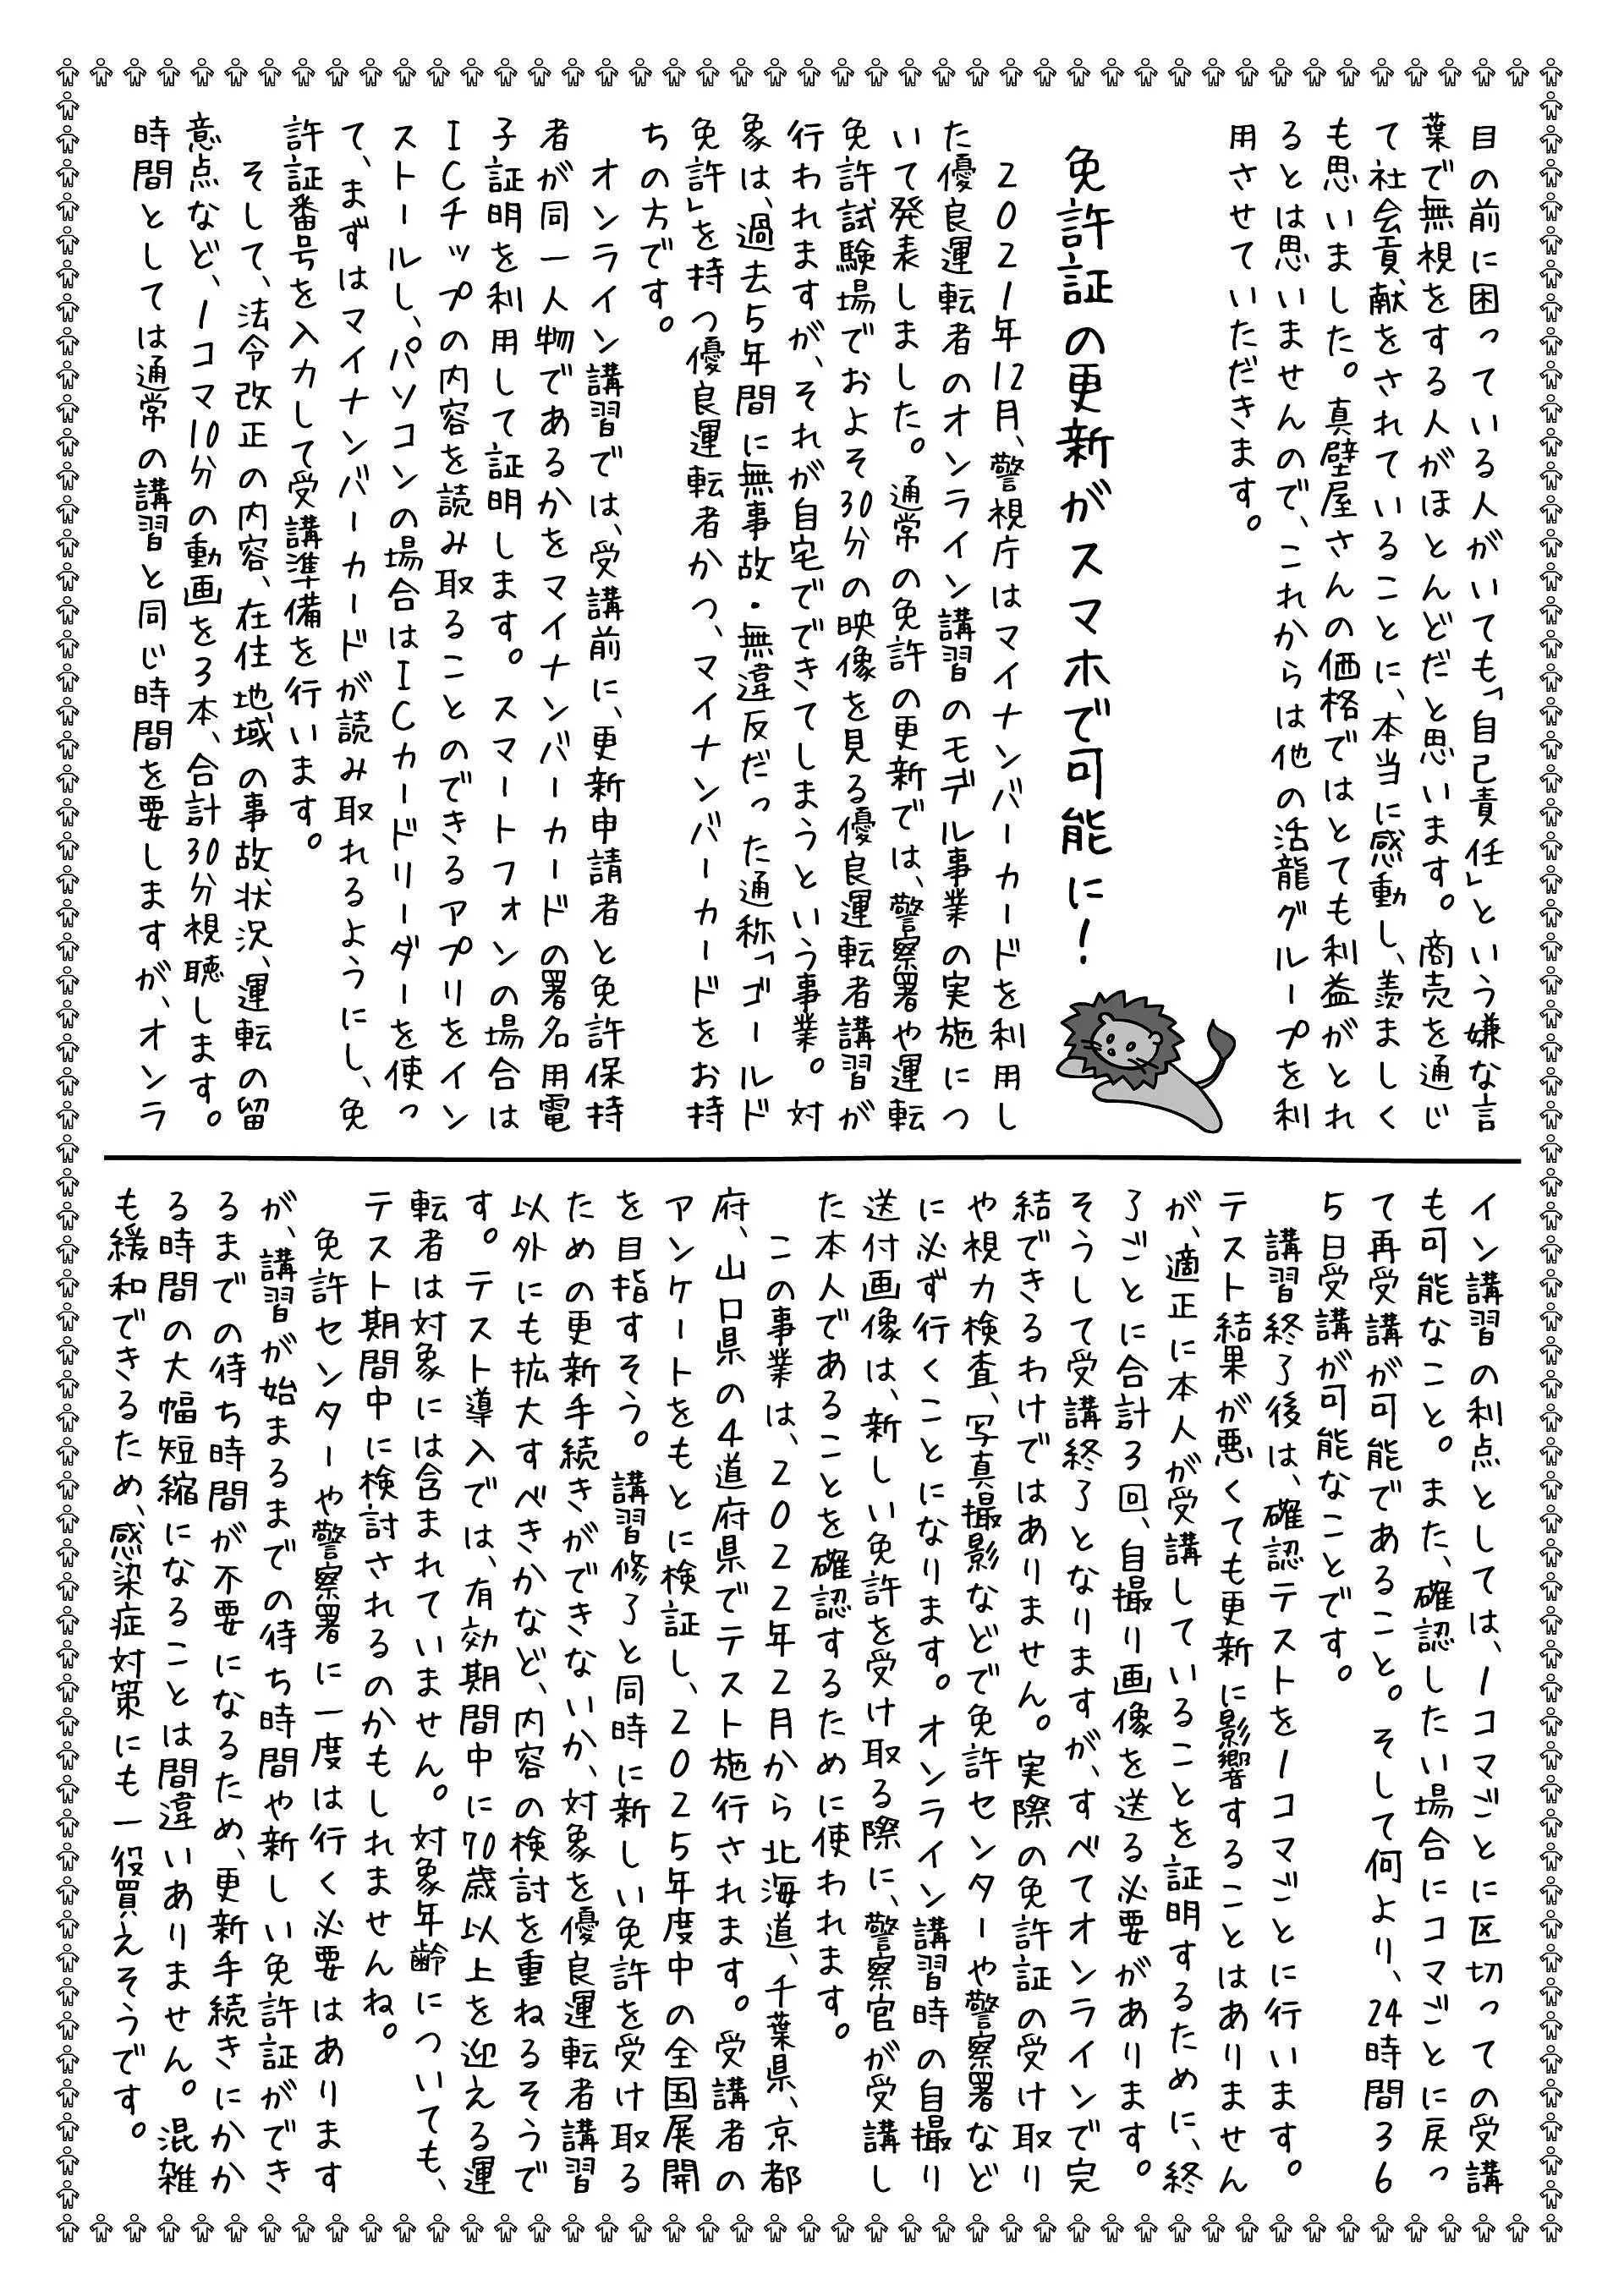 目の前に困っている人がいても、「自己責任」という嫌な言
葉で無視をする人がほとんどだと思います。商売を通じ
て社会貢献をされていることに、本当に感動し、羨ましく
も思いました。真壁屋さんの価格ではとても利益がとれ
るとは思いませんので、これからは他の活龍グループを利
用させていただきます。
免許証の更新がスマホで可能に！
２０２１年12月、警視庁はマイナンバーカードを利用し
た優良運転者のオンライン講習のモデル事業の実施につ
いて発表しました。通常の免許の更新では、警察署や運転
免許試験場でおよそ30分の映像を見る優良運転者講習が
行われますが、それが自宅でできてしまうという事業。対
象は、過去５年間に無事故・無違反だった通称「ゴールド
免許」を持つ優良運転者かつ、マイナンバーカードをお持
ちの方です。
オンライン講習では、受講前に、更新申請者と免許保持
者が同一人物であるかをマイナンバーカードの署名用電
子証明を利用して証明します。スマートフォンの場合は
ＩＣチップの内容を読み取ることのできるアプリをイン
ストールし、パソコンの場合はＩＣカードリーダーを使っ
て、まずはマイナンバーカードが読み取れるようにし、免
許証番号を入力して受講準備を行います。
そして、法令改正の内容、在住地域の事故状況、運転の留
意点など、１コマ10分の動画を３本、合計30分視聴します。
時間としては通常の講習と同じ時間を要しますが、オンラ
イン講習の利点としては、１コマごとに区切っての受講
も可能なこと。また、確認したい場合にコマごとに戻っ
て再受講が可能であること。そして何より、24時間３６
５日受講が可能なことです。
講習終了後は、確認テストを１コマごとに行います。
テスト結果が悪くても更新に影響することはありません
が、適正に本人が受講していることを証明するために、終
了ごとに合計３回、自撮り画像を送る必要があります。
そうして受講終了となりますが、すべてオンラインで完
結できるわけではありません。実際の免許証の受け取り
や視力検査、写真撮影などで免許センターや警察署など
に必ず行くことになります。オンライン講習時の自撮り
送付画像は、新しい免許を受け取る際に、警察官が受講し
た本人であることを確認するために使われます。
この事業は、２０２２年２月から北海道、千葉県、京都
府、山口県の４道府県でテスト施行されます。受講者の
アンケートをもとに検証し、２０２５年度中の全国展開
を目指すそう。講習修了と同時に新しい免許を受け取る
ための更新手続きができないか、対象を優良運転者講習
以外にも拡大すべきかなど、内容の検討を重ねるそうで
す。テスト導入では、有効期間中に70歳以上を迎える運
転者は対象には含まれていません。対象年齢についても、
テスト期間中に検討されるのかもしれませんね。
免許センターや警察署に一度は行く必要はあります
が、講習が始まるまでの待ち時間や新しい免許証ができ
るまでの待ち時間が不要になるため、更新手続きにかか
る時間の大幅短縮になることは間違いありません。混雑
も緩和できるため、感染症対策にも一役買えそうです。